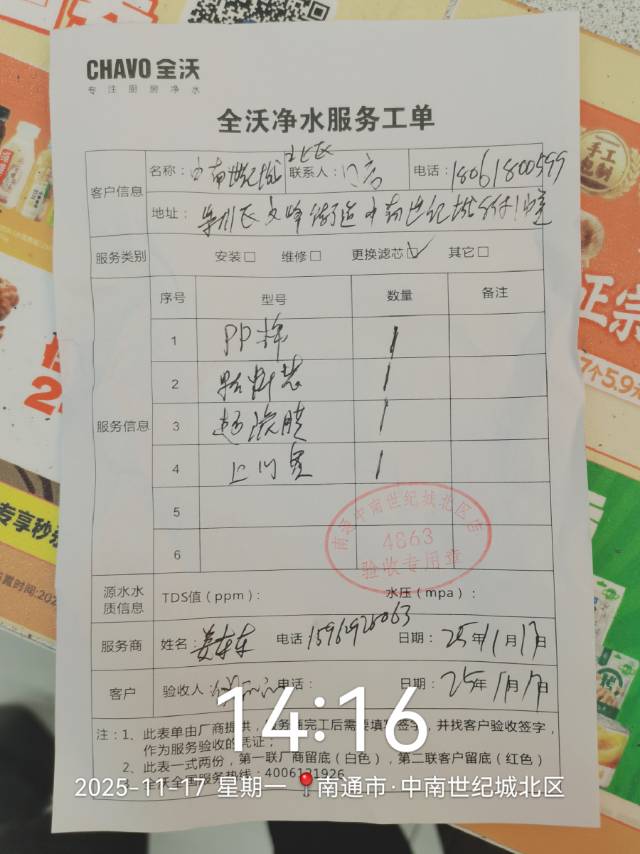 CHAVO 全沃
专注厨房净水
全沃净水服务工单
客户信息
名称：中南世纪城北区 联系人：门店 电话：18061800599
地址：崇川区文峰街道中南世纪城
服务类别 安装□ 维修□ 更换滤芯☑ 其它□
服务信息
序号 型号 数量 备注
1 PP棉 1
2 1
3 超滤膜 1
4 上门费 1
5
6
南通中南世纪城北区店
4863
验收专用章
源水水质信息 TDS值（ppm）： 水压（mpa）：
服务商 姓名：姜东东 电话 15962928063 日期：25年11月17日
客户 验收人： 电话： 日期：25年11月17日
注：1、此表单由厂商提供，服务商完工后需要填写签字，并找客户验收签字，
作为服务验收的凭证；
2、此表一式两份，第一联厂商留底（白色），第二联客户留底（红色）
全沃全国服务热线：4006131926
14:16
2025-11-17 星期一 南通市·中南世纪城北区
正宗
7个5.9元
手工
专享秒杀